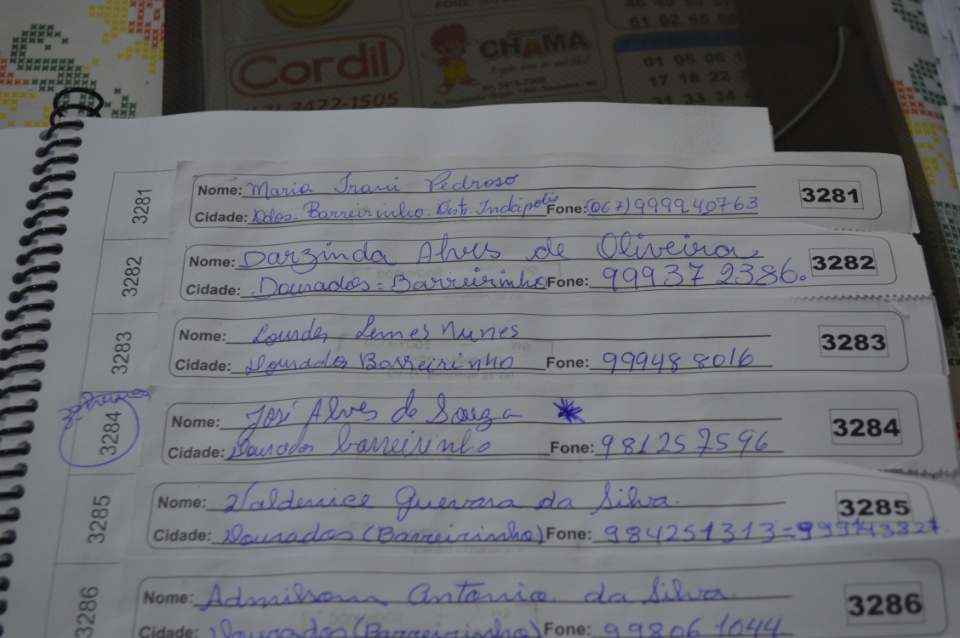 FONE:
46 49 50
61 62 65 66
Cordil
3422-1505
CHAMA
01 05 06
17 18 22
31 33 34
3281 Nome: Maria Irani Pedroso 3281
Cidade: Ddos. Barreirinho. Dist. Indápolis Fone: (067) 999240763
3282 Nome: Darzinda Alves de Oliveira 3282
Cidade: Dourados = Barreirinho Fone: 999372386.
3283 Nome: Lourdes Lemes Nunes 3283
Cidade: Dourados Barreirinho 999488016
3284 Nome: José Alves de Souza 3284
Cidade: Dourados barreirinho Fone: 981257596
3285 Nome: Valdenice Guevara da Silva. 3285
Cidade: Dourados (Barreirinho) Fone: 984251313 = 999143827
3286 Nome: Admilson Antonio da Silva. 3286
Cidade: Dourados (Barreirinho) Fone: 998061044